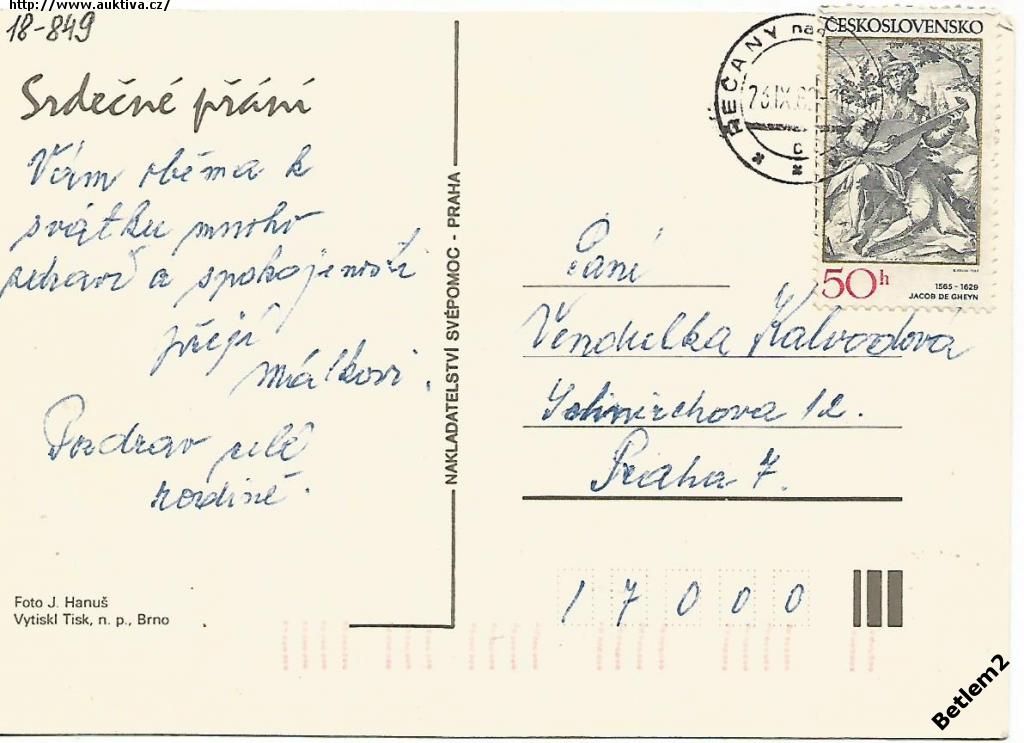 http://www.auktiva.cz/
18-849
Srdečné přání
Vám oběma k
svátku mnoho
zdraví a spokojenosti
přejí
Málkovi.
Pozdrav celé
rodině.
Foto J. Hanuš
Vytiskl Tisk, n. p., Brno
NAKLADATELSTVÍ SVÉPOMOC - PRAHA
ŘEČANY nad
ČESKOSLOVENSKO
50h
1565-1629
JACOB DE GHEYN
Paní
Vendulka Kalvodová
12.
Praha 7.
17000
Betlem2